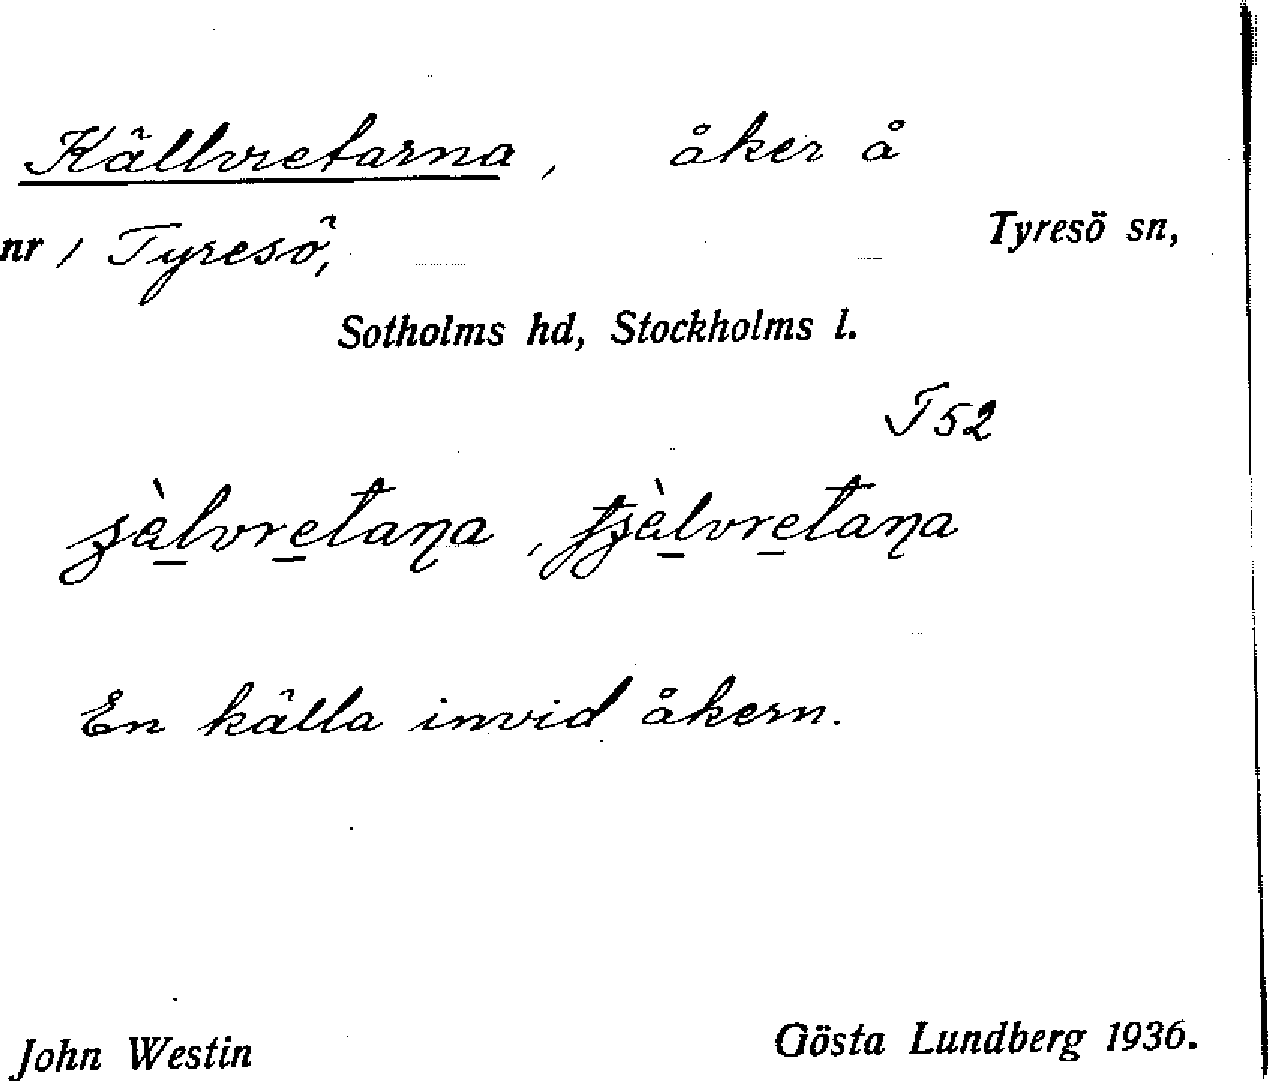 Källvretarna, åker å
nr 1 Tyresö, Tyresö sn,
Sotholms hd, Stockholms l.
T52
En källa invid åkern.
John Westin Gösta Lundberg 1936.